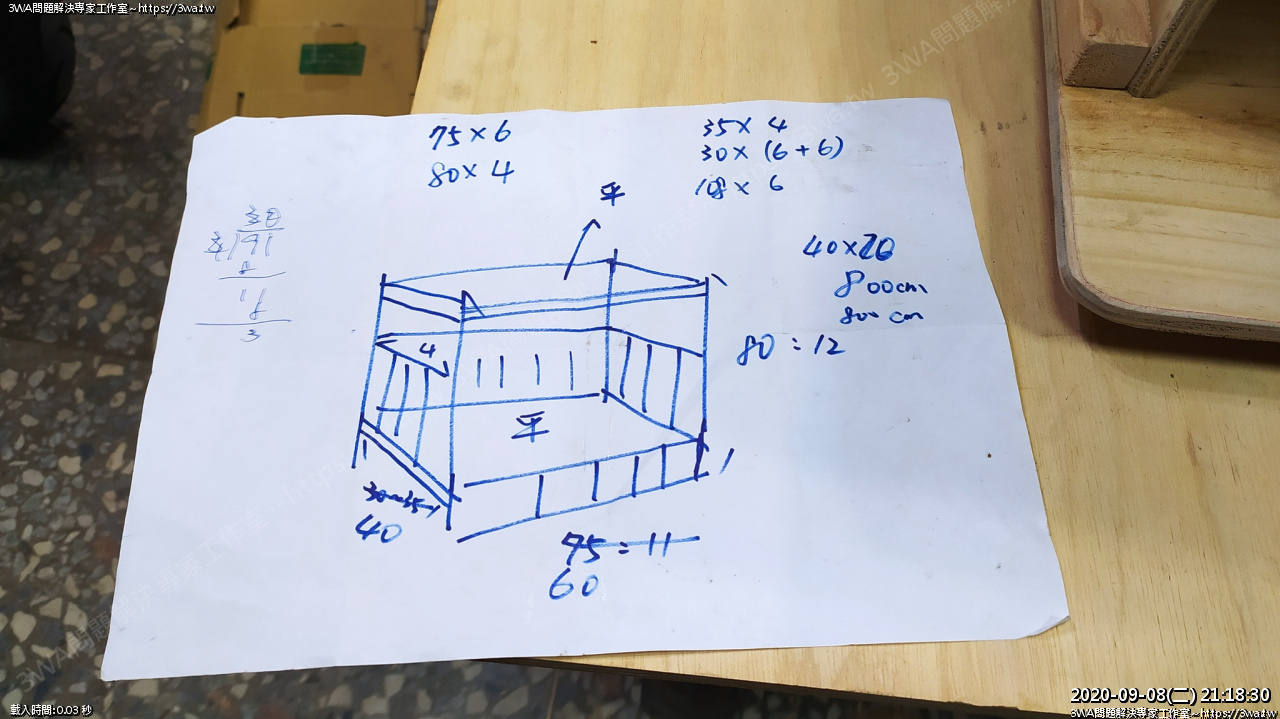 3WA問題解決專家工作室~https://3wa.tw
75 × 6
80 × 4
35 × 4
30 × (6 + 6)
108 × 6
平
30
3)91
11
3
40×20
800cm
800 cm
80 : 12
4
平
30~35
40
75 : 11
60
2020-09-08(二) 21:18:30
載入時間:0.03 秒
3WA問題解決專家工作室~https://3wa.tw